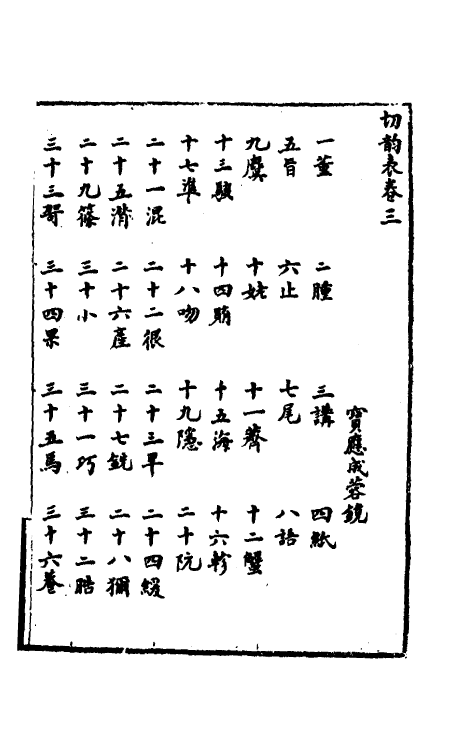 切韵表卷三
寶應成蓉鏡
一董 二腫 三講 四紙
五旨 六止 七尾 八語
九麌 十姥 十一薺 十二蟹
十三駭 十四賄 十五海 十六軫
十七準 十八吻 十九隱 二十阮
二十一混 二十二很 二十三旱 二十四緩
二十五潸 二十六產 二十七銑 二十八獮
二十九篠 三十小 三十一巧 三十二晧
三十三哿 三十四果 三十五馬 三十六養